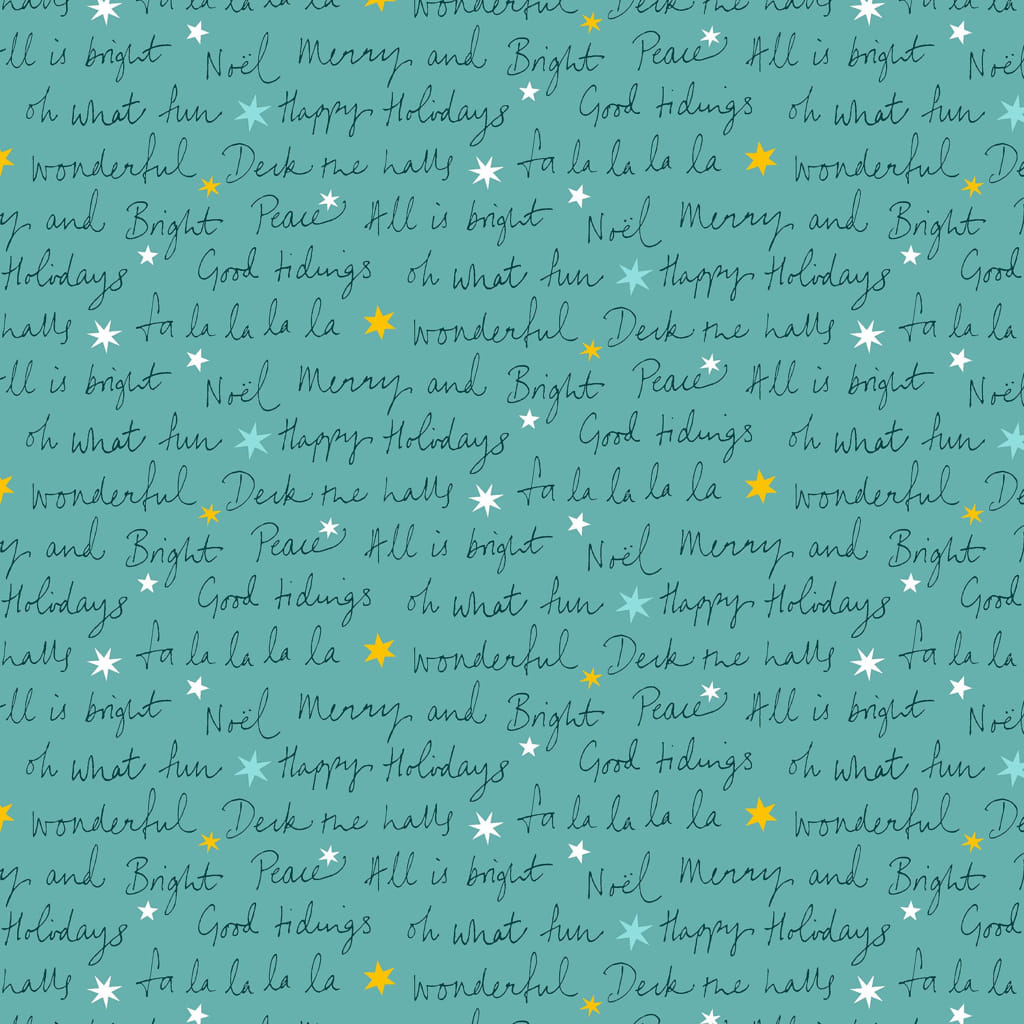 halls fa la la la la wonderful Deck the halls fa la la la
All is bright Noël Merry and Bright Peace All is bright Noël
oh what fun Happy Holidays Good tidings oh what fun
wonderful Deck the halls fa la la la la wonderful De
y and Bright Peace All is bright Noël Merry and Bright
Holidays Good tidings oh what fun Happy Holidays Good
halls fa la la la la wonderful Deck the halls fa la la la
All is bright Noël Merry and Bright Peace All is bright Noël
oh what fun Happy Holidays Good tidings oh what fun
wonderful Deck the halls fa la la la la wonderful De
y and Bright Peace All is bright Noël Merry and Bright
Holidays Good tidings oh what fun Happy Holidays Good
halls fa la la la la wonderful Deck the halls fa la la la
All is bright Noël Merry and Bright Peace All is bright Noël
oh what fun Happy Holidays Good tidings oh what fun
wonderful Deck the halls fa la la la la wonderful De
y and Bright Peace All is bright Noël Merry and Bright
Holidays Good tidings oh what fun Happy Holidays Good
halls fa la la la la wonderful Deck the halls fa la la la